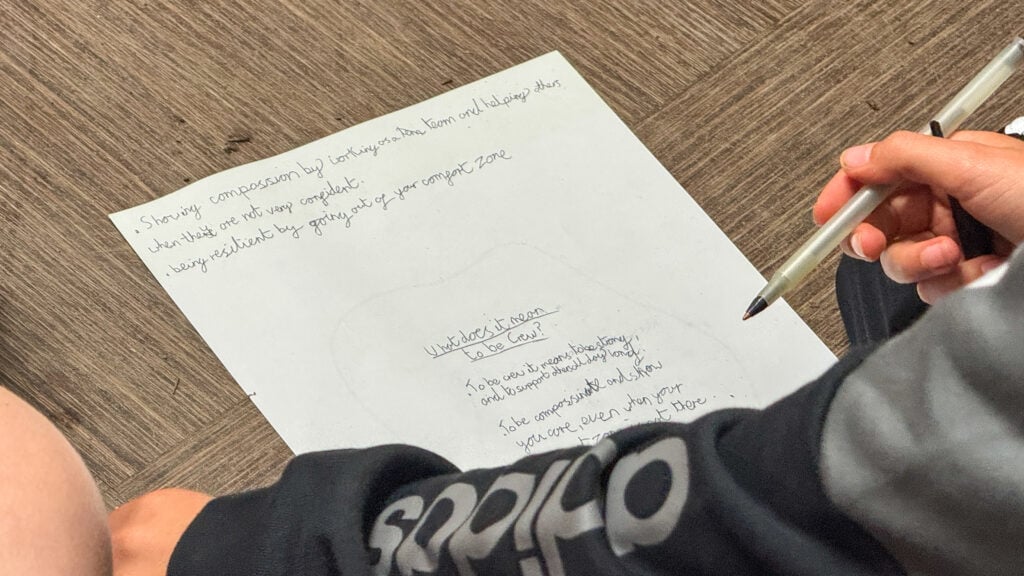 . Showing compassion by working as a team and helping others
when they are not very confident.
. being resilient by going out of your comfort zone
What does it mean
to be Crew?
. To be crew it means to be strong
and to support others
. To be compassionate and show
you care, even when your
not there
adidas